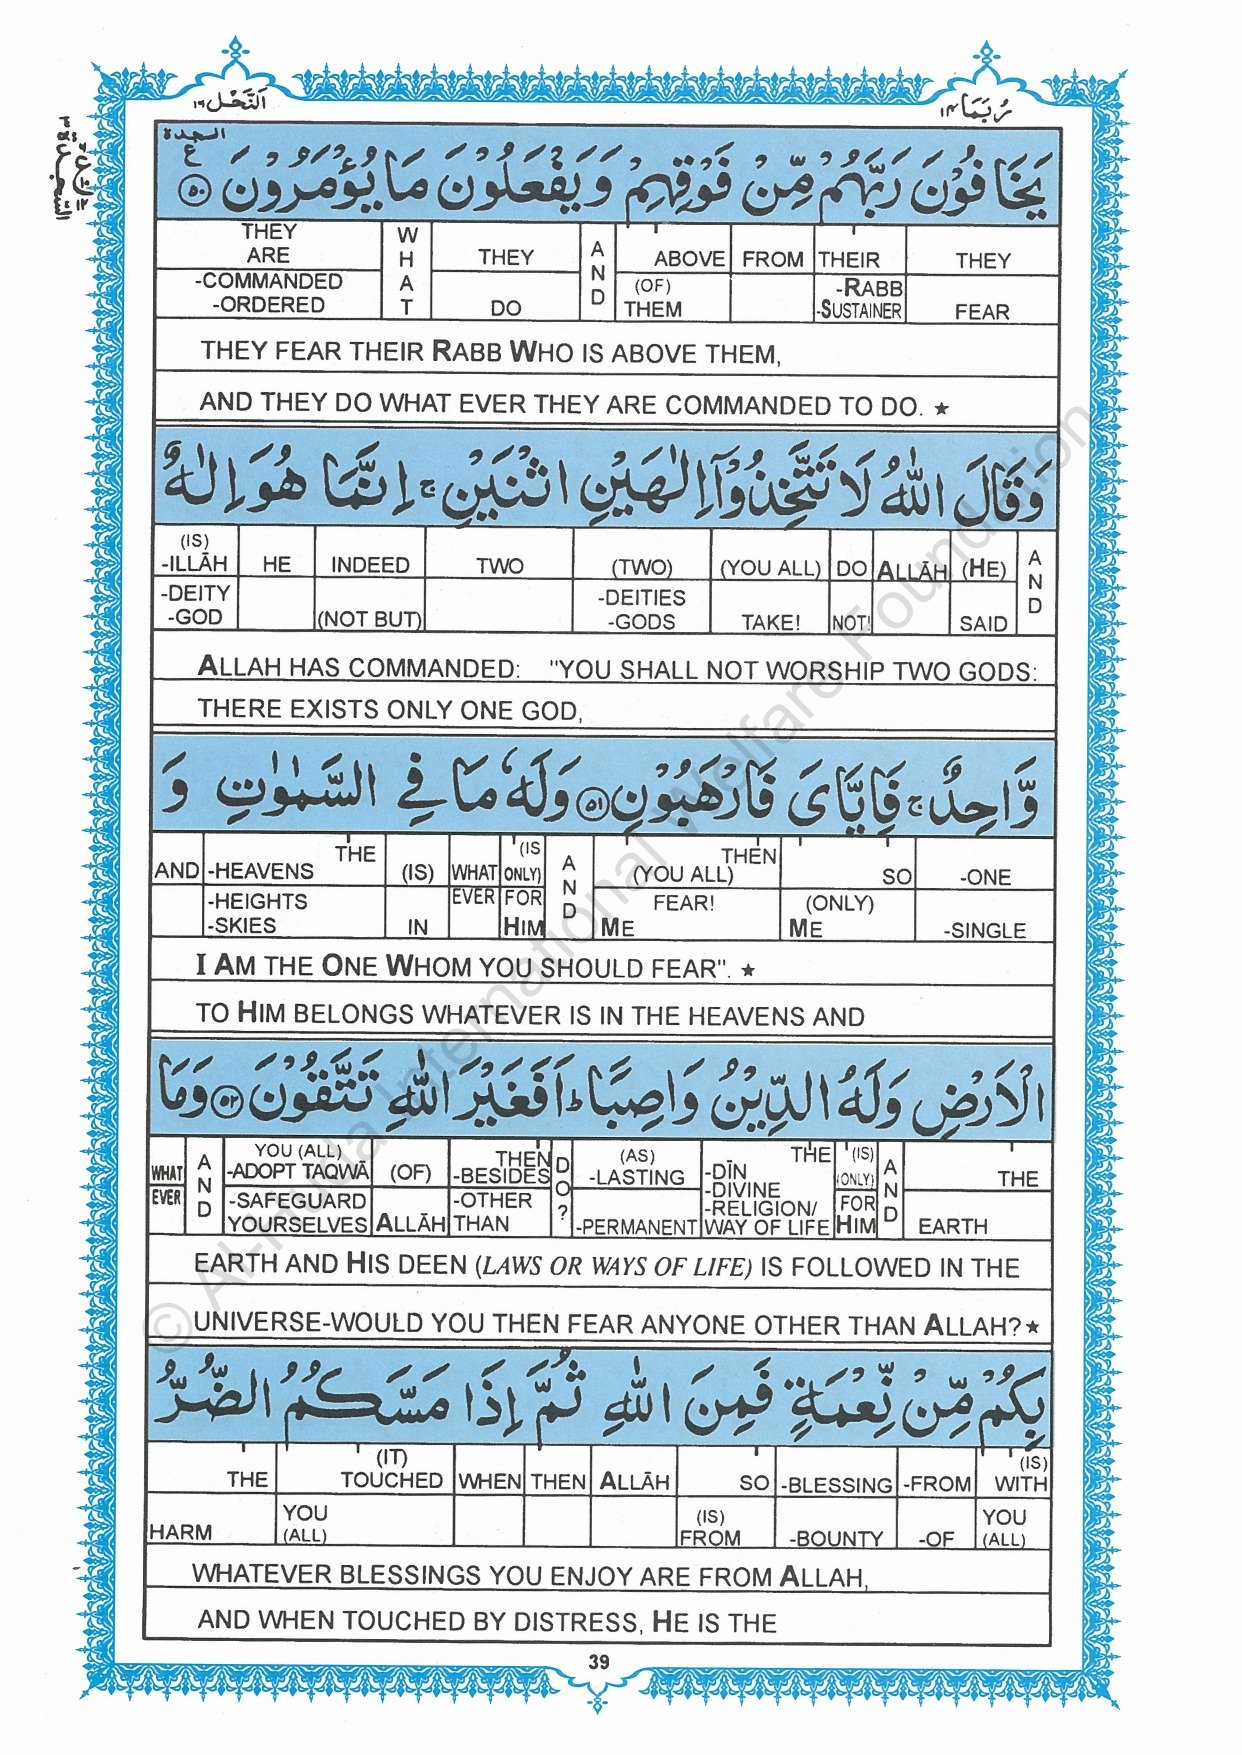 اَلنَّحْل ١٦
رُبَمَا ١٤
السجدة
يَخَافُوْنَ رَبَّهُمْ مِّنْ فَوْقِهِمْ وَيَفْعَلُوْنَ مَا يُؤْمَرُوْنَ ٥٠
THEY ARE -COMMANDED -ORDERED | WHAT | THEY DO | AND | ABOVE (OF) THEM | FROM | THEIR -RABB -SUSTAINER | THEY FEAR
THEY FEAR THEIR RABB WHO IS ABOVE THEM,
AND THEY DO WHAT EVER THEY ARE COMMANDED TO DO. ★
وَقَالَ اللّٰهُ لَا تَتَّخِذُوْٓا اِلٰهَيْنِ اثْنَيْنِ ۚ اِنَّمَا هُوَ اِلٰهٌ
(IS) -ILLĀH -DEITY -GOD | HE | INDEED (NOT BUT) | TWO | (TWO) -DEITIES -GODS | (YOU ALL) TAKE! | DO NOT! | ALLĀH | (HE) SAID | AND
ALLAH HAS COMMANDED: "YOU SHALL NOT WORSHIP TWO GODS:
THERE EXISTS ONLY ONE GOD,
وَّاحِدٌ ۚ فَاِيَّايَ فَارْهَبُوْنِ ٥١ وَلَهٗ مَا فِي السَّمٰوٰتِ وَ
AND | THE -HEAVENS -HEIGHTS -SKIES | (IS) IN | WHAT EVER | (IS ONLY) FOR HIM | AND | THEN (YOU ALL) FEAR! ME | SO (ONLY) ME | -ONE -SINGLE
I AM THE ONE WHOM YOU SHOULD FEAR". ★
TO HIM BELONGS WHATEVER IS IN THE HEAVENS AND
الْاَرْضِ وَلَهُ الدِّيْنُ وَاصِبًا ؕ اَفَغَيْرَ اللّٰهِ تَتَّقُوْنَ ٥٢ وَمَا
WHAT EVER | AND | YOU (ALL) -ADOPT TAQWĀ -SAFEGUARD YOURSELVES | (OF) ALLĀH | THEN -BESIDES -OTHER THAN | DO? | (AS) -LASTING -PERMANENT | THE -DĪN -DIVINE -RELIGION/ WAY OF LIFE | (IS) (ONLY) FOR HIM | AND | THE EARTH
EARTH AND HIS DEEN (LAWS OR WAYS OF LIFE) IS FOLLOWED IN THE
UNIVERSE-WOULD YOU THEN FEAR ANYONE OTHER THAN ALLAH? ★
بِكُمْ مِّنْ نِّعْمَةٍ فَمِنَ اللّٰهِ ثُمَّ اِذَا مَسَّكُمُ الضُّرُّ
THE HARM | (IT) TOUCHED YOU (ALL) | WHEN | THEN | ALLĀH | SO (IS) FROM | -BLESSING -BOUNTY | -FROM -OF | (IS) WITH YOU (ALL)
WHATEVER BLESSINGS YOU ENJOY ARE FROM ALLAH,
AND WHEN TOUCHED BY DISTRESS, HE IS THE
39
© Al-Huda International Welfare Foundation